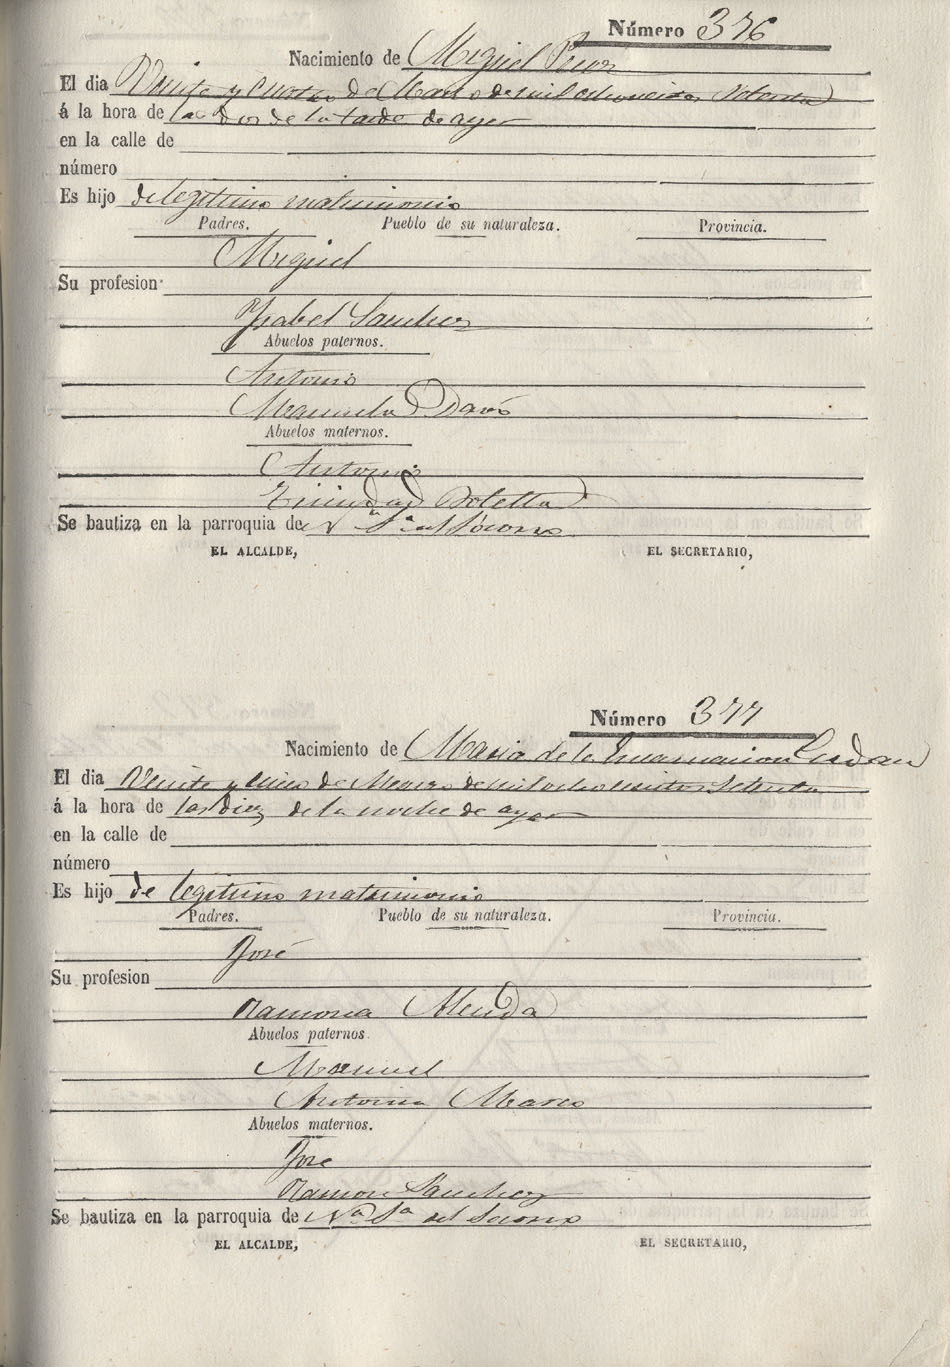 Número 376
Nacimiento de Miguel Perez
El dia Veinte y Cuatro de Marzo de mil ochocientos Setenta
á la hora de las dos de la tarde de ayer
en la calle de
número
Es hijo de legitimo matrimonio
Padres. Pueblo de su naturaleza. Provincia.
Miguel
Su profesion
Ysabel Sanchez
Abuelos paternos.
Antonio
Manuela Davó
Abuelos maternos.
Antonio
Trinidad Botella
Se bautiza en la parroquia de N.ª S.ª del Socorro
EL ALCALDE, EL SECRETARIO,
Número 377
Nacimiento de Maria de la Encarnacion
El dia Veinte y Cinco de Marzo de mil ochocientos Setenta
á la hora de las diez de la noche de ayer
en la calle de
número
Es hijo de legitimo matrimonio
Padres. Pueblo de su naturaleza. Provincia.
José
Su profesion
Ramona
Abuelos paternos.
Manuel
Antonia Marco
Abuelos maternos.
José
Ramona Sanchez
Se bautiza en la parroquia de N.ª S.ª del Socorro
EL ALCALDE, EL SECRETARIO,